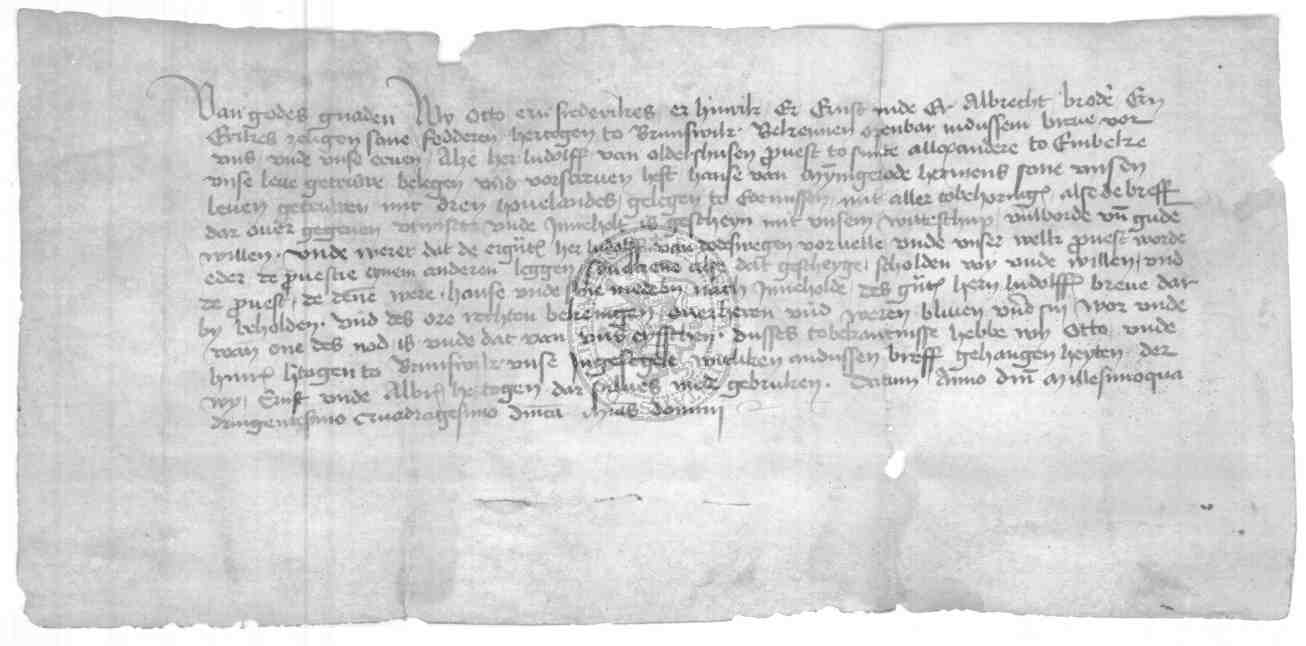 Van godes gnaden Wy Otto ern frederikes, er hinrik, Er Ernst unde Er Albrecht brodere Ern
Erikes zeligen sone fedderen hertogen to Brunswik Bekennen openbar indussem breue vor
uns unde unse eruen, Alze her ludolff van oldershusen prouest to sunte allexandere to Einbeke
unse leue getruwe belegen und vorscreuen heft hanse van Mynnigerode hermens sone unsen
leuen getruwen mit dren houelandes, gelegen to Edemissen, mit aller tobehoringe, alse de breff
dar ouer gegeuen utwiset unde Inneholt, is gescheyn mit unsem witteschup, vulborde und gude
willen. Unde weret dat de ergnte her ludolff van dodeswegen voruelle unde unser welk prouest worde
eder de prouestie einem anderen leggen dat gescheyge, scholden wy unde willen, und
de prouest, de denne were, hanse unde sine medebn nach Inneholde des gnte hern ludolffs breue dar
by beholden. Und des ore rechten bekennigen, ouerheren und weren bliuen und sin, wor unde
wan one des nod is unde dat van uns esschen. Dusses tobekantnisse hebbe wy Otto, unde
hinric htogen to Brunswik unse Ingesegele witliken an dussen breff gehangen heyten der
wy, Ernst unde Albrt hertogen dar sulues mede gebruken. Datum Anno dni Millesimoqua
dringentesimo Quadragesimo domini